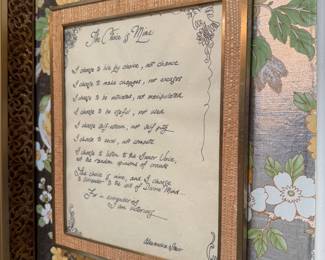 The Choice is Mine
I choose to live by choice, not chance
I choose to make changes, not excuses
I choose to be motivated, not manipulated
I choose to be useful, not used
I choose self-esteem, not self pity
I choose to excel, not compete
I choose to listen to the Inner Voice,
not the random opinions of crowds
The choice is mine, and I choose
to surrender to the will of Divine Mind...
For in surrendering
I am victorious...